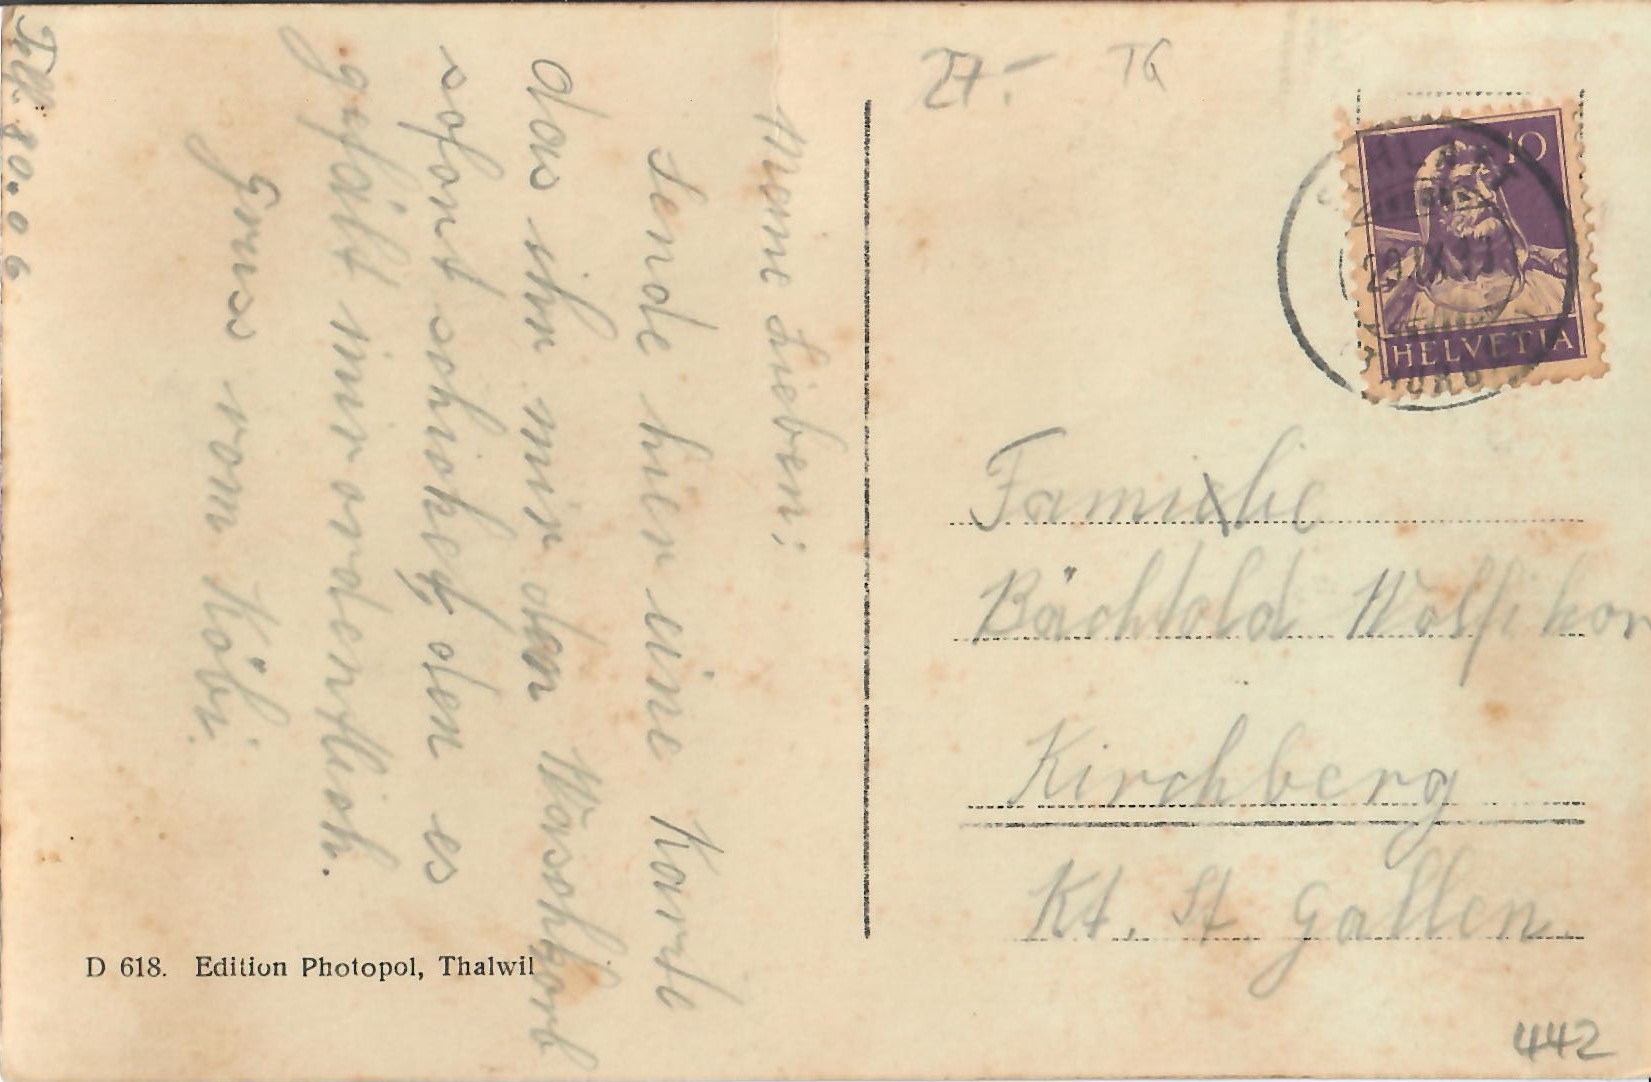 Meine Lieben:
Sende hier eine Karte
das ihr mir den Waschkorb
sofort schicket den es
gefält mir ordentlich.
Gruss vom Köbi
Telf. 80.0.06
D 618. Edition Photopol, Thalwil
27.- TG
10
HELVETIA
SCHLATT
THURG
Familie
Bächtold Wolfikon
Kirchberg
Kt. St. Gallen.
442